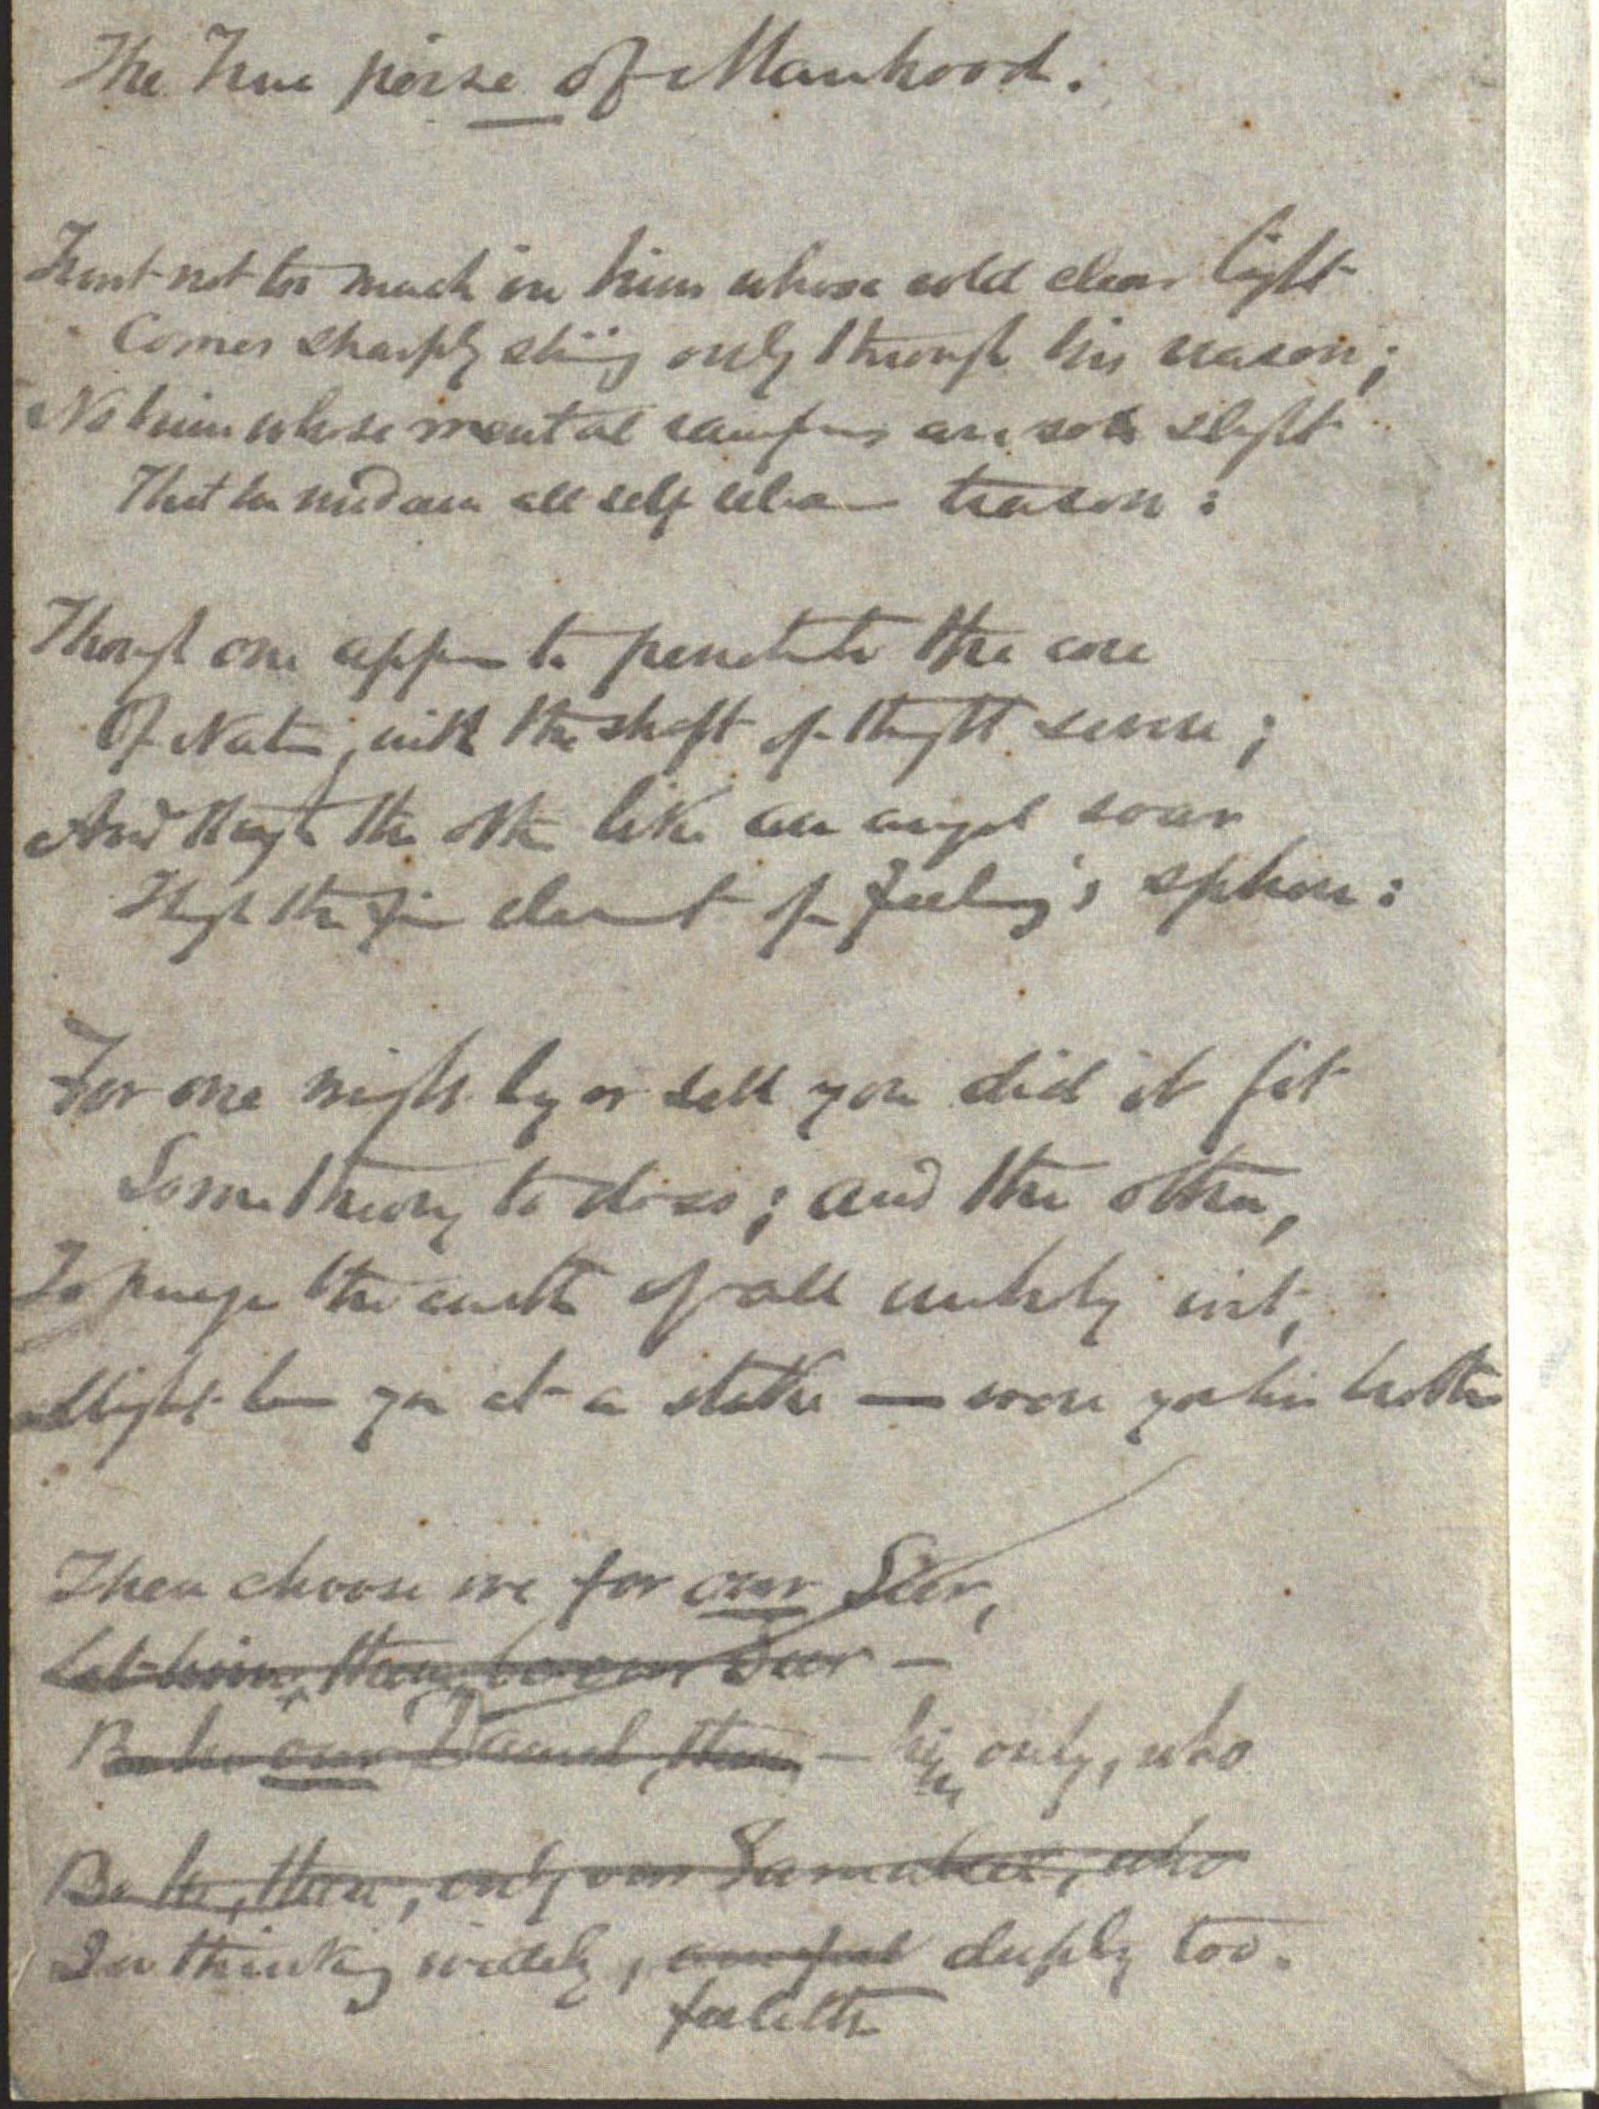 The True poise of Manhood.
Trust not too much in him whose cold clear light
Comes sharply shing only through his reason;
No him whose mental are so slight
That he all self treason:
Though one appears to penetrate the core
Of Nature, with the shaft of thought severe;
And though the other like an angel soar
Through the fine element of feeling's sphere:
For one might buy or sell you did it fit
Some theory to do so; and the other,
To purge the earth of all unholy wit,
Might burn you at a stake — were you his brother
Then choose we for our Seer,
Let him, then, be our Seer —
Be he our Daniel, then, — him only, who
Be he, then, only our Samuel, who
In thinking widely, deeply too.
feeleth